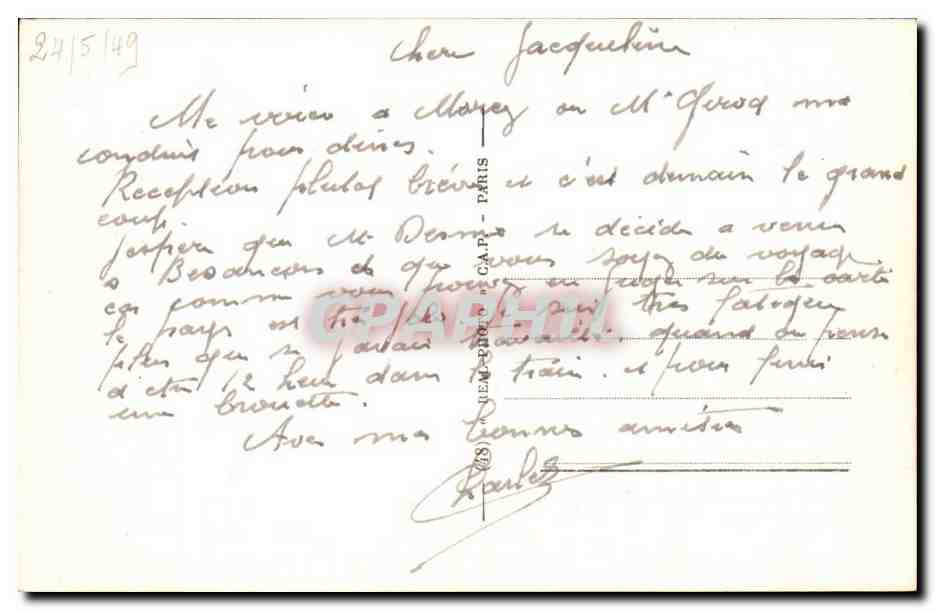 24/5/49
Chere Jacqueline
Me voici a Morez ou Mr Girod me
conduit pour diner.
Reception plutot brève et c'est demain le grand
coup.
J'espere que Mr se decide a venir
a Besancon et que vous soyez du voyage
car comme vous pouvez en juger sur la carte
le pays est très joli. Je suis très fatigué
plus que si j'avais travaillé. quand on pense
d'etre 12 heures dans le train. et pour finir
une brouette.
Avec mes bonnes amitiés
Charles
(48) - REAL-PHOTO - C.A.P. - PARIS
CPAPHIL